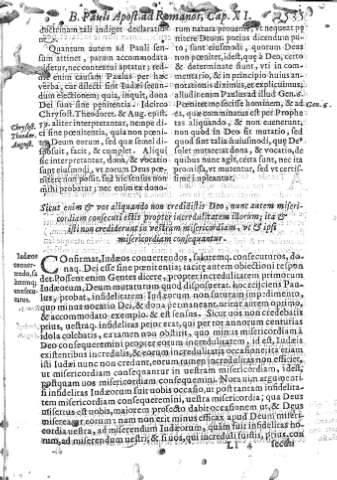 B. Pauli Apost. ad Romanos, Cap. XI.
doctrinam tali indiget declaratione.
Quantum autem ad Pauli sensum attinet, parum accommodata
videtur, nec contextui aptatur; sed
enim causam Paulus per hæc
verba, cur dilecti sint Iudæi secundum
electionem; quia, inquit, dona
Dei sunt sine pœnitentia. Idcirco
Chrysost. Theodoret. & Aug. epist.
aliter interpretantur, nempe dici
sine pœnitentia, quia non pœnitet
Deum eorum, sed qua semel disposuit,
facit, & complet. Aliqui
sic interpretantur, dona, & vocatio
sunt eiusmodi, vt eorum Deus pœnitere
non possit, sed hic sensus non
mihi probatur; nec enim ex dono
Chrysost.
Theodor.
August.
rum natura prouenit, vt nequeat pœnitere
Deum: potius dicendum puto,
sunt eiusmodi, quorum Deus
non pœnitet, idest, quæ à Deo, certo
& determinate sunt, vti in commentario,
& in principio huius annotationis
diximus, & explicuimus;
alludit enim Paulus ad illud Gen. 6.
Pœnitet me fecisse hominem, & ad
quæ comminatus est per Prophetas
aliquando, & non euenerunt,
non quod in Deo sit mutatio, sed
quod sint talia
solet mutare; at dona, & vocatio, de
quibus nunc agit, certa sunt, nec in
promissu, vt mutentur, sed vt certissime
impleantur.
Gen. 6.
Sicut enim & vos aliquando non credidistis Deo, nunc autem misericordiam
consecuti estis propter incredulitatem illorum; ita &
isti non crediderunt in vestram misericordiam, vt & ipsi
misericordiam consequantur.
Iudæos
COnfirmat, Iudæos conuertendos, salutemq. consecuturos, donaq.
Dei esse sine pœnitentia; tacitæ autem obiectioni respondet.
Possent enim Gentes dicere, propter incredulitatem priorum
Iudæorum, Deum mutaturum quod disposuerat. hoc reijciens Paulus,
probat, infidelitatem Iudæorum non futuram impedimento,
quo minus vocatio Dei, & dona permaneant, vtitur autem optimo,
& accommodato exemplo, & est sensus. Sicut vos non credebatis
prius, vestraq. infidelitas peior erat, qui per tot annorum centurias
idola colebatis, ea tamen non obstitit, quo minus misericordiam à
Deo consequeremini propter eorum incredulitatem, id est, Iudæis
existentibus incredulis, & eorum incredulitatis occasione; ita etiam
isti Iudæi nunc non credunt, eorum tamen incredulitas non efficiet,
ut misericordiam consequantur in vestram misericordiam, idest,
postquam uos misericordiam consequemini. Nota uim argumenti.
si infidelitas Iudæorum fuit uobis occasio, ut post tantam infidelitatem
misericordiam consequeremini, uestra misericordia; qua Deus
misertus est uobis, maiorem profecto dabit occasionem ut, & Deus
misereatur eorum; nam non erit minus efficax apud Deum misericordia
uestra, ad miserendum Iudæorum, quàm fuit infidelitas horum,
ad miserendum uestri; & si uos, qui increduli fuistis, prius, con
Ll 4